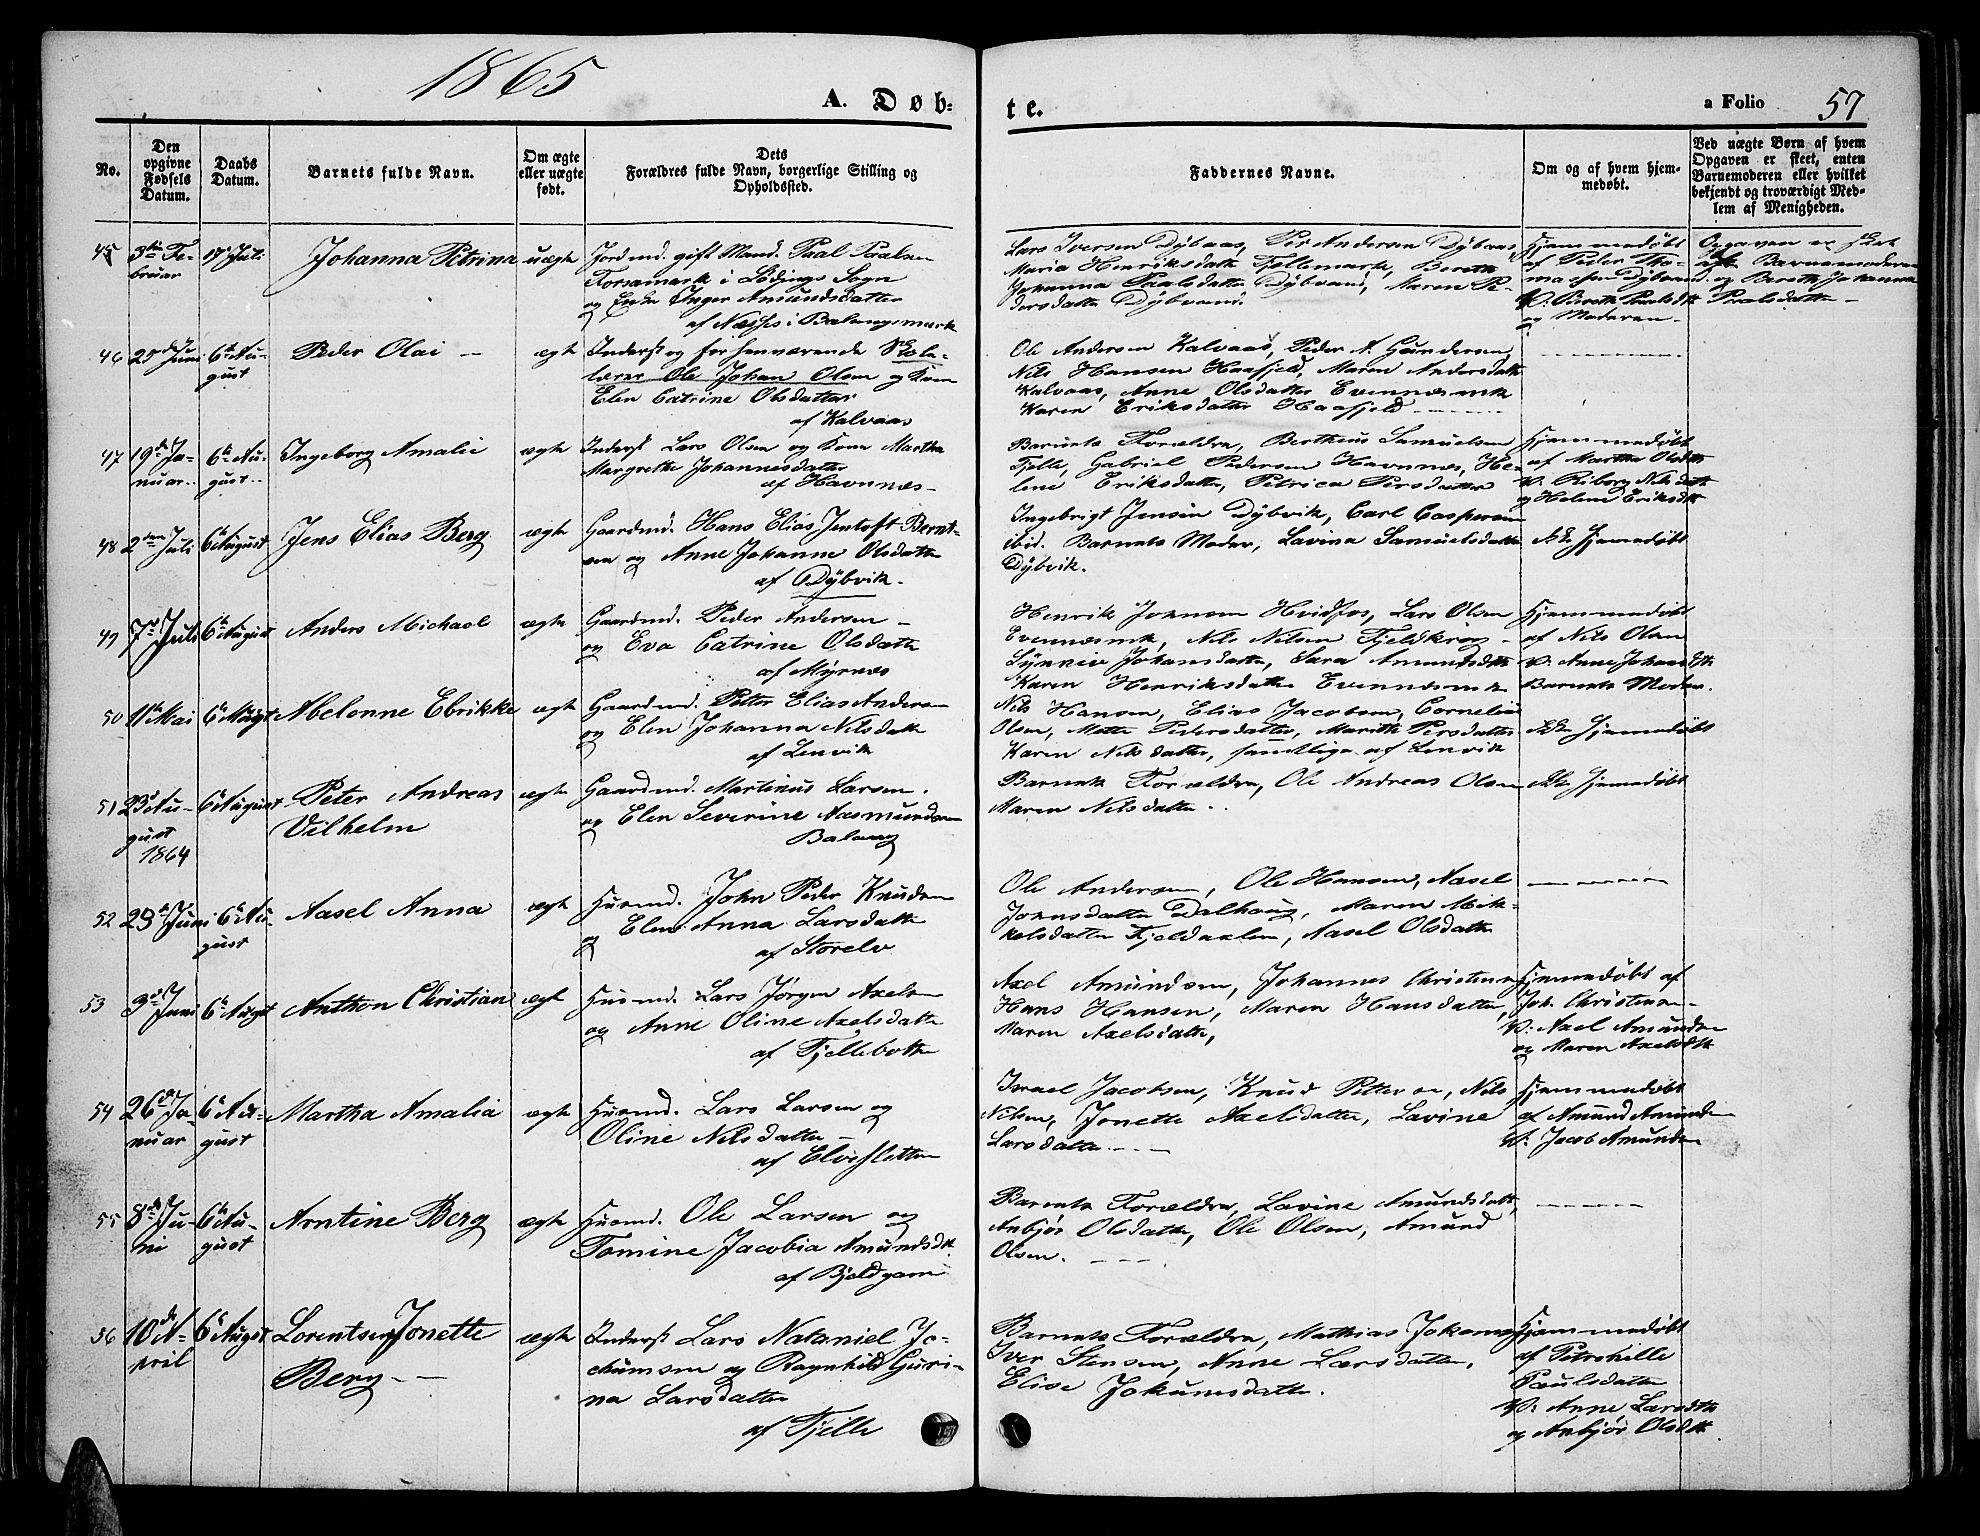 1865
A. Døb-
te.
a Folio 57
No.
Den opgivne Fødsels Datum.
Daabs Datum.
Barnets fulde Navn.
Om ægte eller uægte født.
Dets Forældres fulde Navn, borgerlige Stilling og Opholdssted.
Faddernes Navne.
Om og af hvem hjemmedøbt.
Ved uægte Børn af hvem Opgaven er skeet, enten Barnemoderen eller hvilket bekjendt og troværdigt Medlem af Menigheden.
45 3die Februar Juli Johanna Petrina uægte
Jordmd. gift Mand Paal Paalsen
Forsamark i Lødings Sogn
og Enke Inger Amundsdatter
af Næsse i Balangsmark
Lars Iversen Dybvas, Per Andersen Dybvas
Maria Henriksdatter Fjellemark, Bereth
Johanna Paalsdatter Dybvand, Maren Pe-
dersdatter Dybvand.
Hjemmedøbt
af Peder Tho-
masen Dybvand.
V: Bereth Paalsdt.
og Moderen
Opgaven er skeet
af Barnemoderen
og Bereth Johanna
Paalsdatter
46 25de Juni 6te August Peder Olai ægte
Inderst og forhenværende Skole-
lærer Ole Johan Olsen og Kone
Elen Catrine Olsdatter
af Kalvaas
Ole Andersen Kalvaas, Peder A. Gundersen,
Nils Hansen Haafjeld, Maren Andersdatter
Kalvaas, Anne Olsdatter Evennæsmk
Karen Eriksdatter Haafjeld
47 19de Januar 6te August Ingeborg Amalie ægte
Inderst Lars Olsen og Kone Martha
Margrethe Johannesdatter
af Havnnæs
Barnets Forældre, Bertheus Samuelsen
Fjelle, Gabriel Pedersen Havnnæs, He-
lene Eriksdatter, Petrica Persdatter
Hjemmedøbt
af Martha Olsdtr
V: Riborg Nilsdatter
og Helene Eriksdtr
48 2den Juli 6te August Jens Elias Berg ægte
Gaardmd. Hans Elias Jentoft Bernt-
sen og Anne Johanne Olsdatter
af Dybvik
Ingebrigt Jensen Dybvik, Carl Caspersen
ibid. Barnets Moder, Lavina Samuelsdatter
Dybvik.
Ikke Hjemmedøbt
49 7de Juli 6te August Anders Michael ægte
Gaardmd. Peder Andersen
og Eva Catrine Olsdatter
af Myrnæs
Henrik Johnsen Hvidfos, Lars Olsen
Evennæsmk, Nils Nilsen Fjeldkrog
Synnive Johansdatter, Sara Amundsdtr
Karen Henriksdatter Evennæsmk
Hjemmedøbt
af Nils Olsen
V: Anne Johansdtr
Barnets Moder.
50 11te Mai 6te August Abelonne Ebrikke ægte
Gaardmd. Petter Elias Andersen
og Elen Johanna Nilsdatter
af Lenvik
Nils Hansen, Elias Jacobsen, Cornelius
Olsen, Mette Pedersdatter, Marith Persdatter
Karen Nilsdatter, samtlige af Lenvik
Ikke Hjemmedøbt
51 23de August 1864 6te August Peter Andreas
Vilhelm ægte
Gaardmd. Martinus Larsen
og Elen Severine Aasmundsen
Balang
Barnets Forældre, Ole Andreas Olsen
Maren Nilsdatter.
Ikke Hjemmedøbt
52 25de Juni 6te August Aasel Anna ægte
Husmd. John Peder Knudsen
og Elen Anna Larsdatter
af Storelv
Ole Andersen, Ole Hansen, Aasel
Johnsdatter Dalhaug, Maren Mik-
kelsdatter Fjeldaalen, Aasel Olsdatter
53 3de Juni 6te August Anthon Christian ægte
Husmd. Lars Jørgen Axelsen
og Anne Oline Axelsdatter
af Fjellebotten
Axel Amundsen, Johannes Christensen
Hans Hansen, Maren Hansdatter,
Maren Axelsdatter,
Hjemmedøbt af
Joh. Christensen
V: Axel Amundsen
og Maren Axelsdtr
54 26de Januar 6te August Martha Amalia ægte
Husmd. Lars Larsen og
Oline Nilsdatter
af Elvesletten
Israel Jacobsen, Knud Pettersen, Nils
Nilsen, Jonette Axelsdatter, Lavine
Larsdatter.
Hjemmedøbt
af Amund Amundsen
V: Jacob Amundsen
55 8de Juni 6te August Arntine Berg ægte
Husmd. Ole Larsen og
Tomine Jacobia Amundsdtr
af Bjeldgam
Barnets Forældre, Lavine Amundsdatter,
Anbjør Olsdatter, Ole Olsen, Amund
Olsen.
56 10de April 6te August Lorentse Jonette
Berg ægte
Inderst Lars Nataniel Jo-
chumsen og Ragnhild Guri-
na Larsdatter
af Fjelle
Barnets Forældre, Mathias Johansen
Iver Stensen, Anne Larsdatter,
Elise Jokumsdatter.
Hjemmedøbt
af Petronelle
Paulsdatter
V: Anne Larsdtr
og Anbjør Olsdtr.